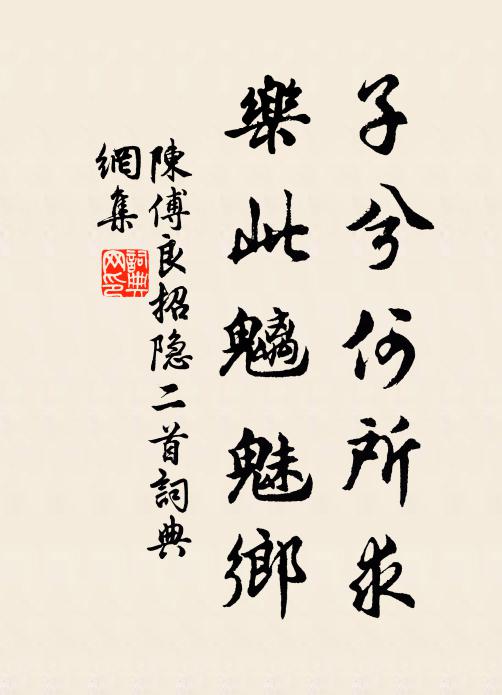 子兮何所求
樂此魑魅鄉
陳傅良招隐二首詞典
網集
詞典
网印